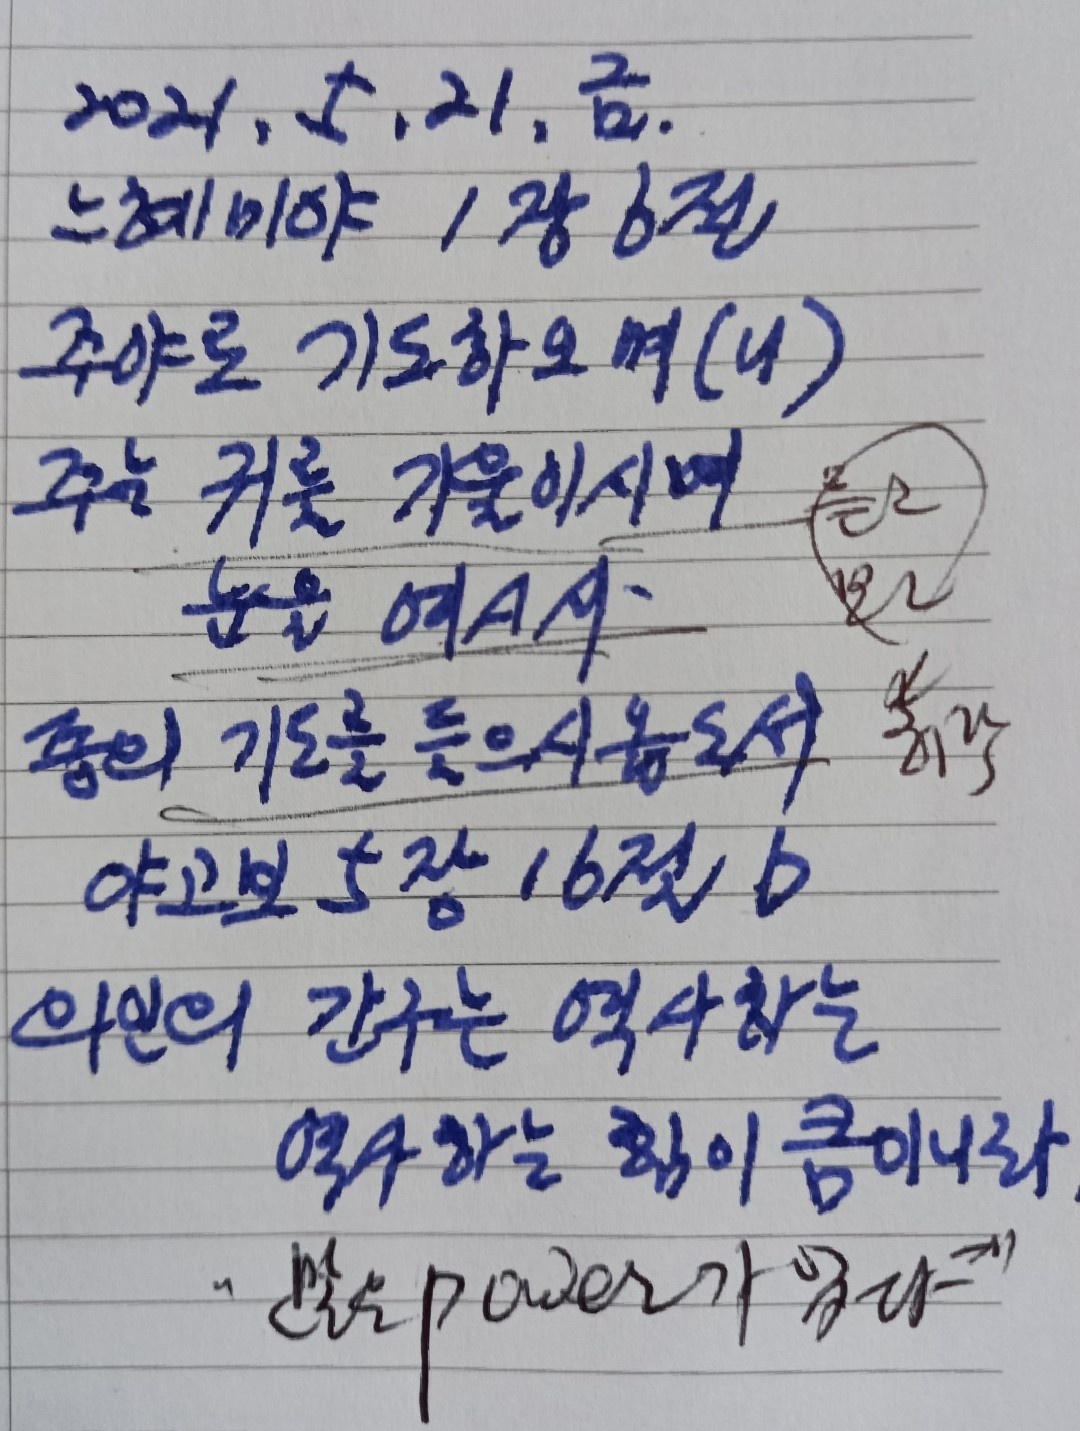 2021. 5. 21. 금.
느헤미야 1장 6절
주야로 기도하오며(나)
주는 귀를 기울이시며
눈을 여시사
종의 기도를 들으시옵소서
야고보 5장 16절 b
의인의 간구는 역사하는
역사하는 힘이 큼이니라.
power가